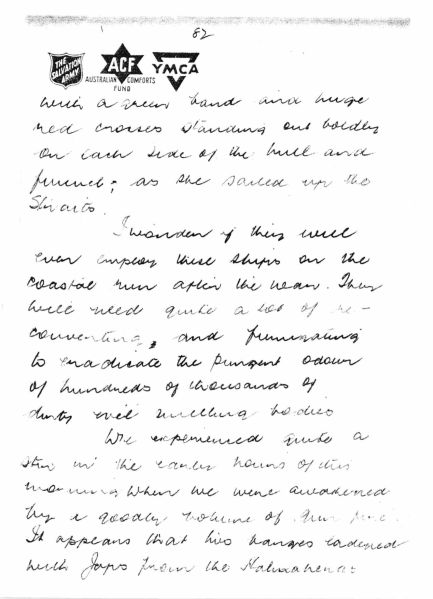 82
THE SALVATION ARMY
ACF
AUSTRALIAN COMFORTS FUND
YMCA
with a green band and huge
red crosses standing out boldly
on each side of the hull and
funnel; as she sailed up the
Straits.
I wonder if they will
ever employ these ships on the
coastal run after the war. They
will need quite a lot of re-
converting, and fumigating
to eradicate the pungent odour
of hundreds of thousands of
dirty evil smelling bodies
We experienced quite a
stir in the early hours of this
morning when we were awakened
by a goodly volume of gun fire.
It appears that two barges ladened
with Japs from the Halmaheras